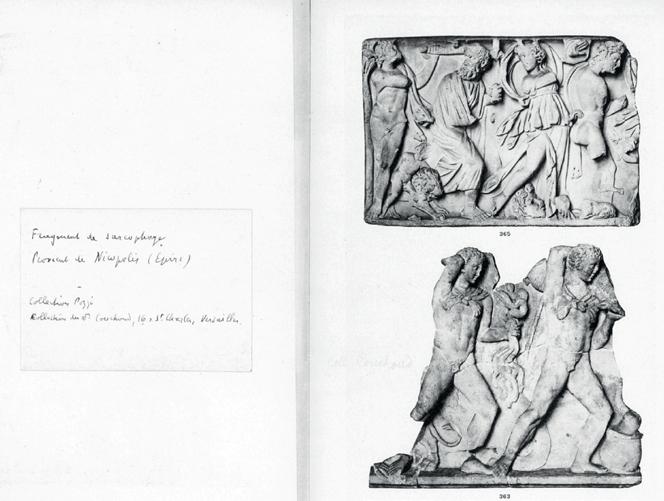 Fragment de sarcophage
Provient de Nicopolis (Epire)
Collection Pozzi
Collection du Dr Couchoud, 16 r. St Charles, Versailles.
365
Coll. Couchoud
363